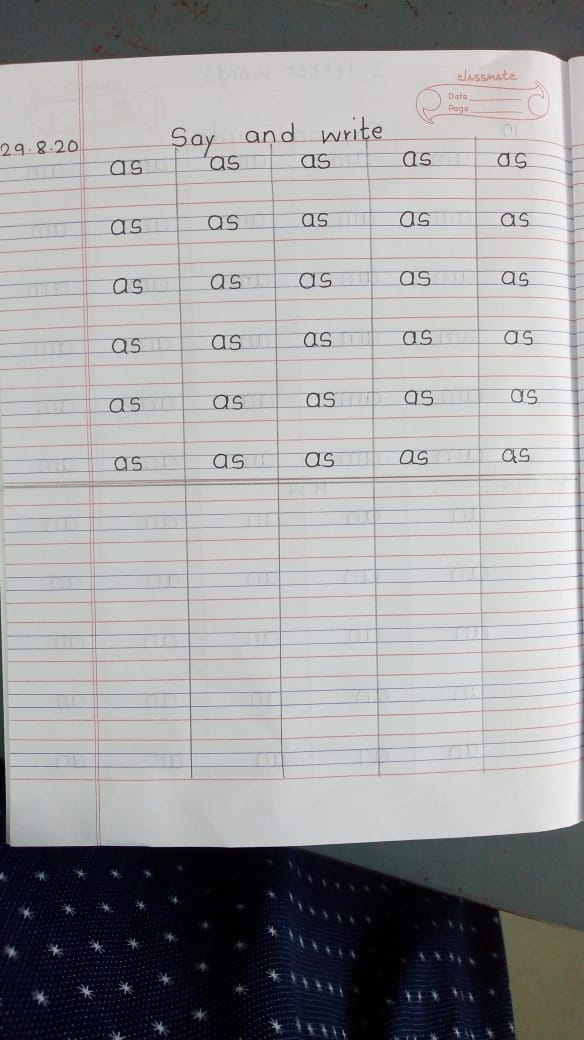 classmate
Date
Page
Say and write
29.8.20
as as as as as
as as as as as
as as as as as
as as as as as
as as as as as
as as as as as